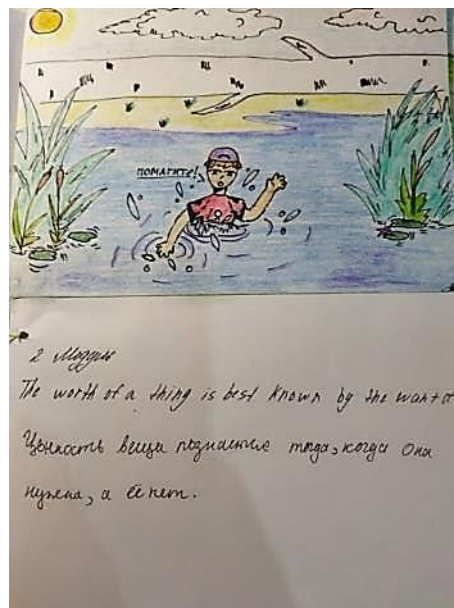 ПОМАГИТЕ!
2 Модуль
The worth of a thing is best known by the want o
Ценность вещи познаётся тогда, когда она
нужена, а её нет.